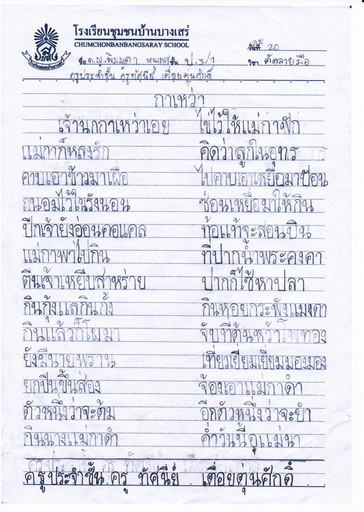 โรงเรียนชุมชนบ้านบางเสร่
CHUMCHONBANBANGSARAY SCHOOL
วันที่ 20
ชื่อ ด.ญ. ชั้น ป.3/1 วิชา คัดลายมือ
ครูประจำชั้น ครูทัศนีย์ เตื่อยตุ่นศักดิ์
กาเหว่า
เจ้านกกาเหว่าเอย ไข่ไว้ให้แม่กาฟัก
แม่กาก็หลงรัก คิดว่าลูกในอุทร
คาบเอาข้าวมาเผื่อ ไปคาบเอาเหยื่อมาป้อน
ถนอมไว้ในรังนอน ซ่อนเหยื่อมาให้กิน
ปีกเจ้ายังอ่อนคอแคล ท้อแท้จะสอนบิน
แม่กาพาไปกิน ที่ปากน้ำพระคงคา
ตีนเจ้าเหยียบสาหร่าย ปากก็ไซ้หาปลา
กินกุ้งแลกินกั้ง กินหอยกระพังแมงดา
กินแล้วก็โผมา จับที่ต้นหว้าโพทอง
ยังมีนายพราน เที่ยวเยี่ยมเยี่ยมมองมอง
ยกปืนขึ้นส่อง จ้องเอาแม่กาดำ
ตัวหนึ่งว่าจะต้ม อีกตัวหนึ่งว่าจะยำ
กินนางแม่กาดำ ค่ำวันนี้อุแม่นา
ครูประจำชั้น ครู ทัศนีย์ เตื่อยตุ่นศักดิ์